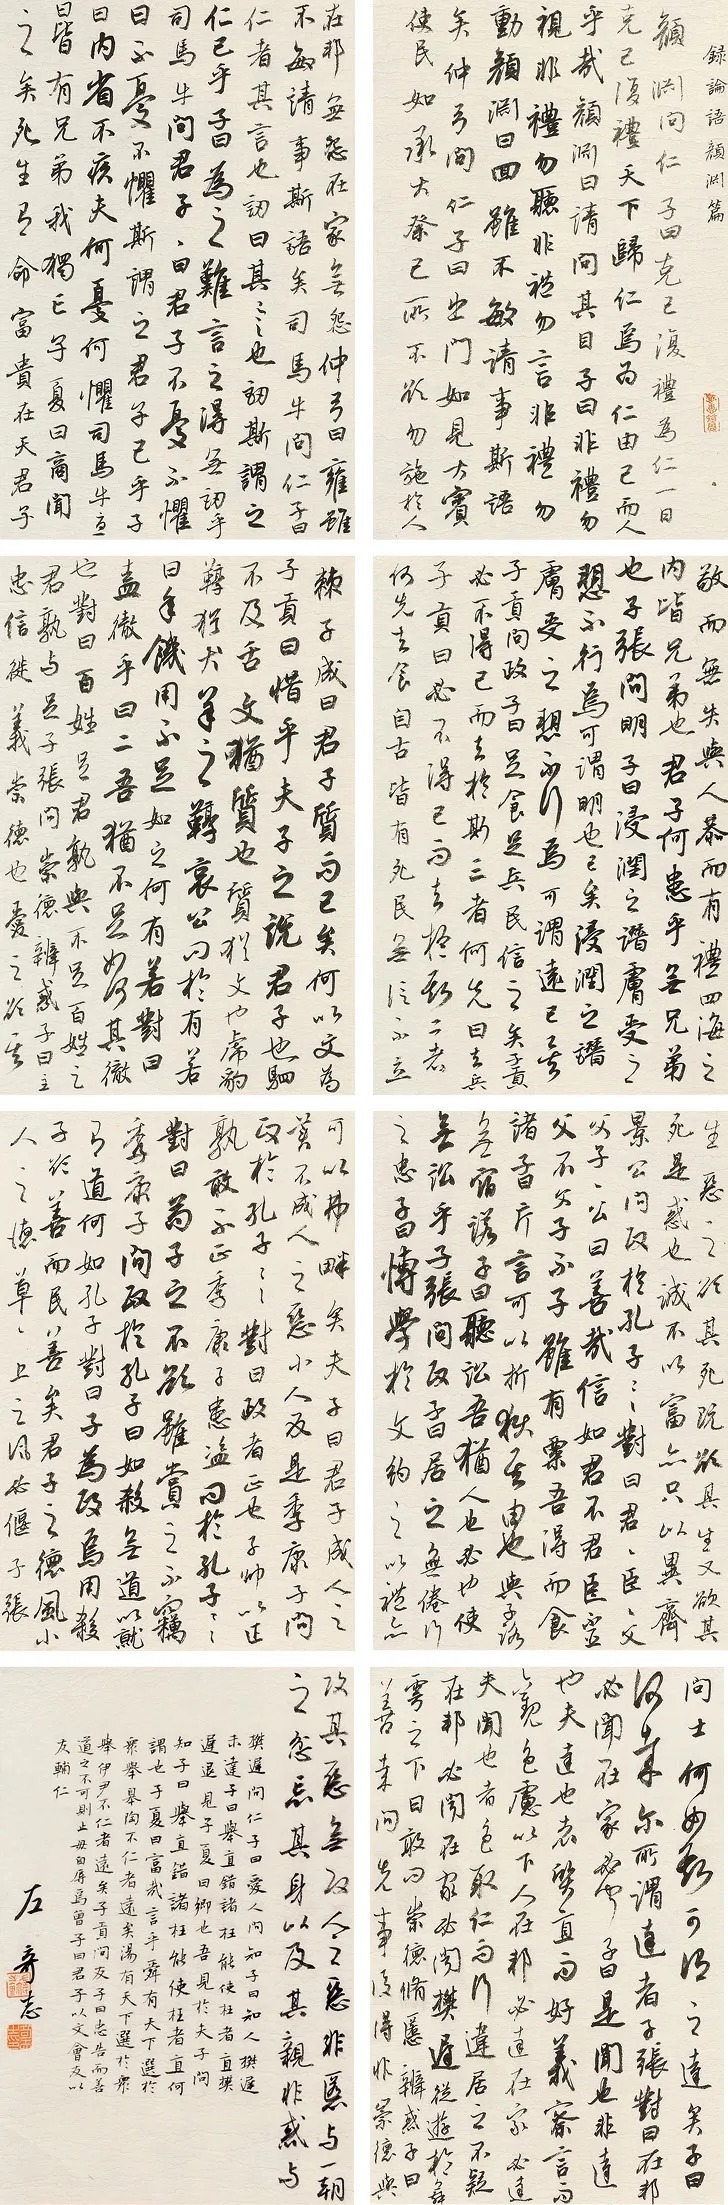 録論語顏淵篇
顏淵問仁子曰克己復禮為仁一日
克己復禮天下歸仁焉為仁由己而人
乎哉顏淵曰請問其目子曰非禮勿
視非禮勿聽非禮勿言非禮勿
動顏淵曰回雖不敏請事斯語
矣仲弓問仁子曰出門如見大賓
使民如承大祭己所不欲勿施於人
在邦無怨在家無怨仲弓曰雍雖
不敏請事斯語矣司馬牛問仁子曰
仁者其言也訒曰其言也訒斯謂之
仁已乎子曰為之難言之得無訒乎
司馬牛問君子子曰君子不憂不懼
曰不憂不懼斯謂之君子已乎子
曰內省不疚夫何憂何懼司馬牛憂
曰皆有兄弟我獨亡子夏曰商聞
之矣死生有命富貴在天君子
敬而無失與人恭而有禮四海之
內皆兄弟也君子何患乎無兄弟
也子張問明子曰浸潤之譖膚受之
愬不行焉可謂明也已矣浸潤之譖
膚受之愬不行焉可謂遠已矣
子貢問政子曰足食足兵民信之矣子貢
曰必不得已而去於斯三者何先曰去兵
子貢曰必不得已而去於斯二者
何先去食自古皆有死民無信不立
棘子成曰君子質而已矣何以文為
子貢曰惜乎夫子之說君子也駟
不及舌文猶質也質猶文也虎豹
鞟猶犬羊之鞟哀公問於有若
曰年饑用不足如之何有若對曰
盍徹乎曰二吾猶不足如何其徹
也對曰百姓足君孰與不足百姓之
君孰與足子張問崇德辨惑子曰主
忠信徙義崇德也愛之欲其
生惡之欲其死既欲其生又欲其
死是惑也誠不以富亦只以異齊
景公問政於孔子孔子對曰君君臣臣父
父子子公曰善哉信如君不君臣不臣
父不父子不子雖有粟吾得而食
諸子曰片言可以折獄其由也與子路
無宿諾子曰聽訟吾猶人也必也使
無訟乎子張問政子曰居之無倦行
之忠子曰博學於文約之以禮亦
可以弗畔矣夫子曰君子成人之
美不成人之惡小人反是季康子問
政於孔子孔子對曰政者正也子帥以正
孰敢不正季康子患盜問於孔子孔子
對曰苟子之不欲雖賞之不竊
季康子問政於孔子曰如殺無道以就
有道何如孔子對曰子為政焉用殺
子欲善而民善矣君子之德風小
人之德草草上之風必偃子張
問士何如斯可謂之達矣子曰
何哉爾所謂達者子張對曰在邦
必聞在家必聞子曰是聞也非達
也夫達也者質直而好義察言而
觀色慮以下人在邦必達在家必達
夫聞也者色取仁而行違居之不疑
在邦必聞在家必聞樊遲從遊於舞
雩之下曰敢問崇德脩慝辨惑子曰
善哉問先事後得非崇德與
攻其惡無攻人之惡非慝與一朝
之忿忘其身以及其親非惑與
樊遲問仁子曰愛人問知子曰知人樊遲
未達子曰舉直錯諸枉能使枉者直樊
遲退見子夏曰鄉也吾見於夫子問
知子曰舉直錯諸枉能使枉者直何
謂也子夏曰富哉言乎舜有天下選於
眾舉皋陶不仁者遠矣湯有天下選於眾
舉伊尹不仁者遠矣子貢問友子曰忠告而善
道之不可則止毋自辱焉曾子曰君子以文會友以
友輔仁
左奇志